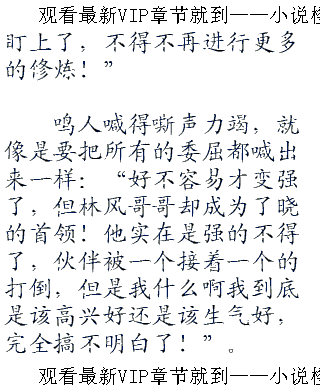 观看最新VIP章节就到——小说检
盯上了，不得不再进行更多
的修炼！”
鸣人喊得嘶声力竭，就
像是要把所有的委屈都喊出
来一样：“好不容易才变强
了，但林风哥哥却成为了晓
的首领！他实在是强的不得
了，伙伴被一个接着一个的
打倒，但是我什么啊我到底
是该高兴好还是该生气好，
完全搞不明白了！”。
观看最新VIP章节就到——小说检